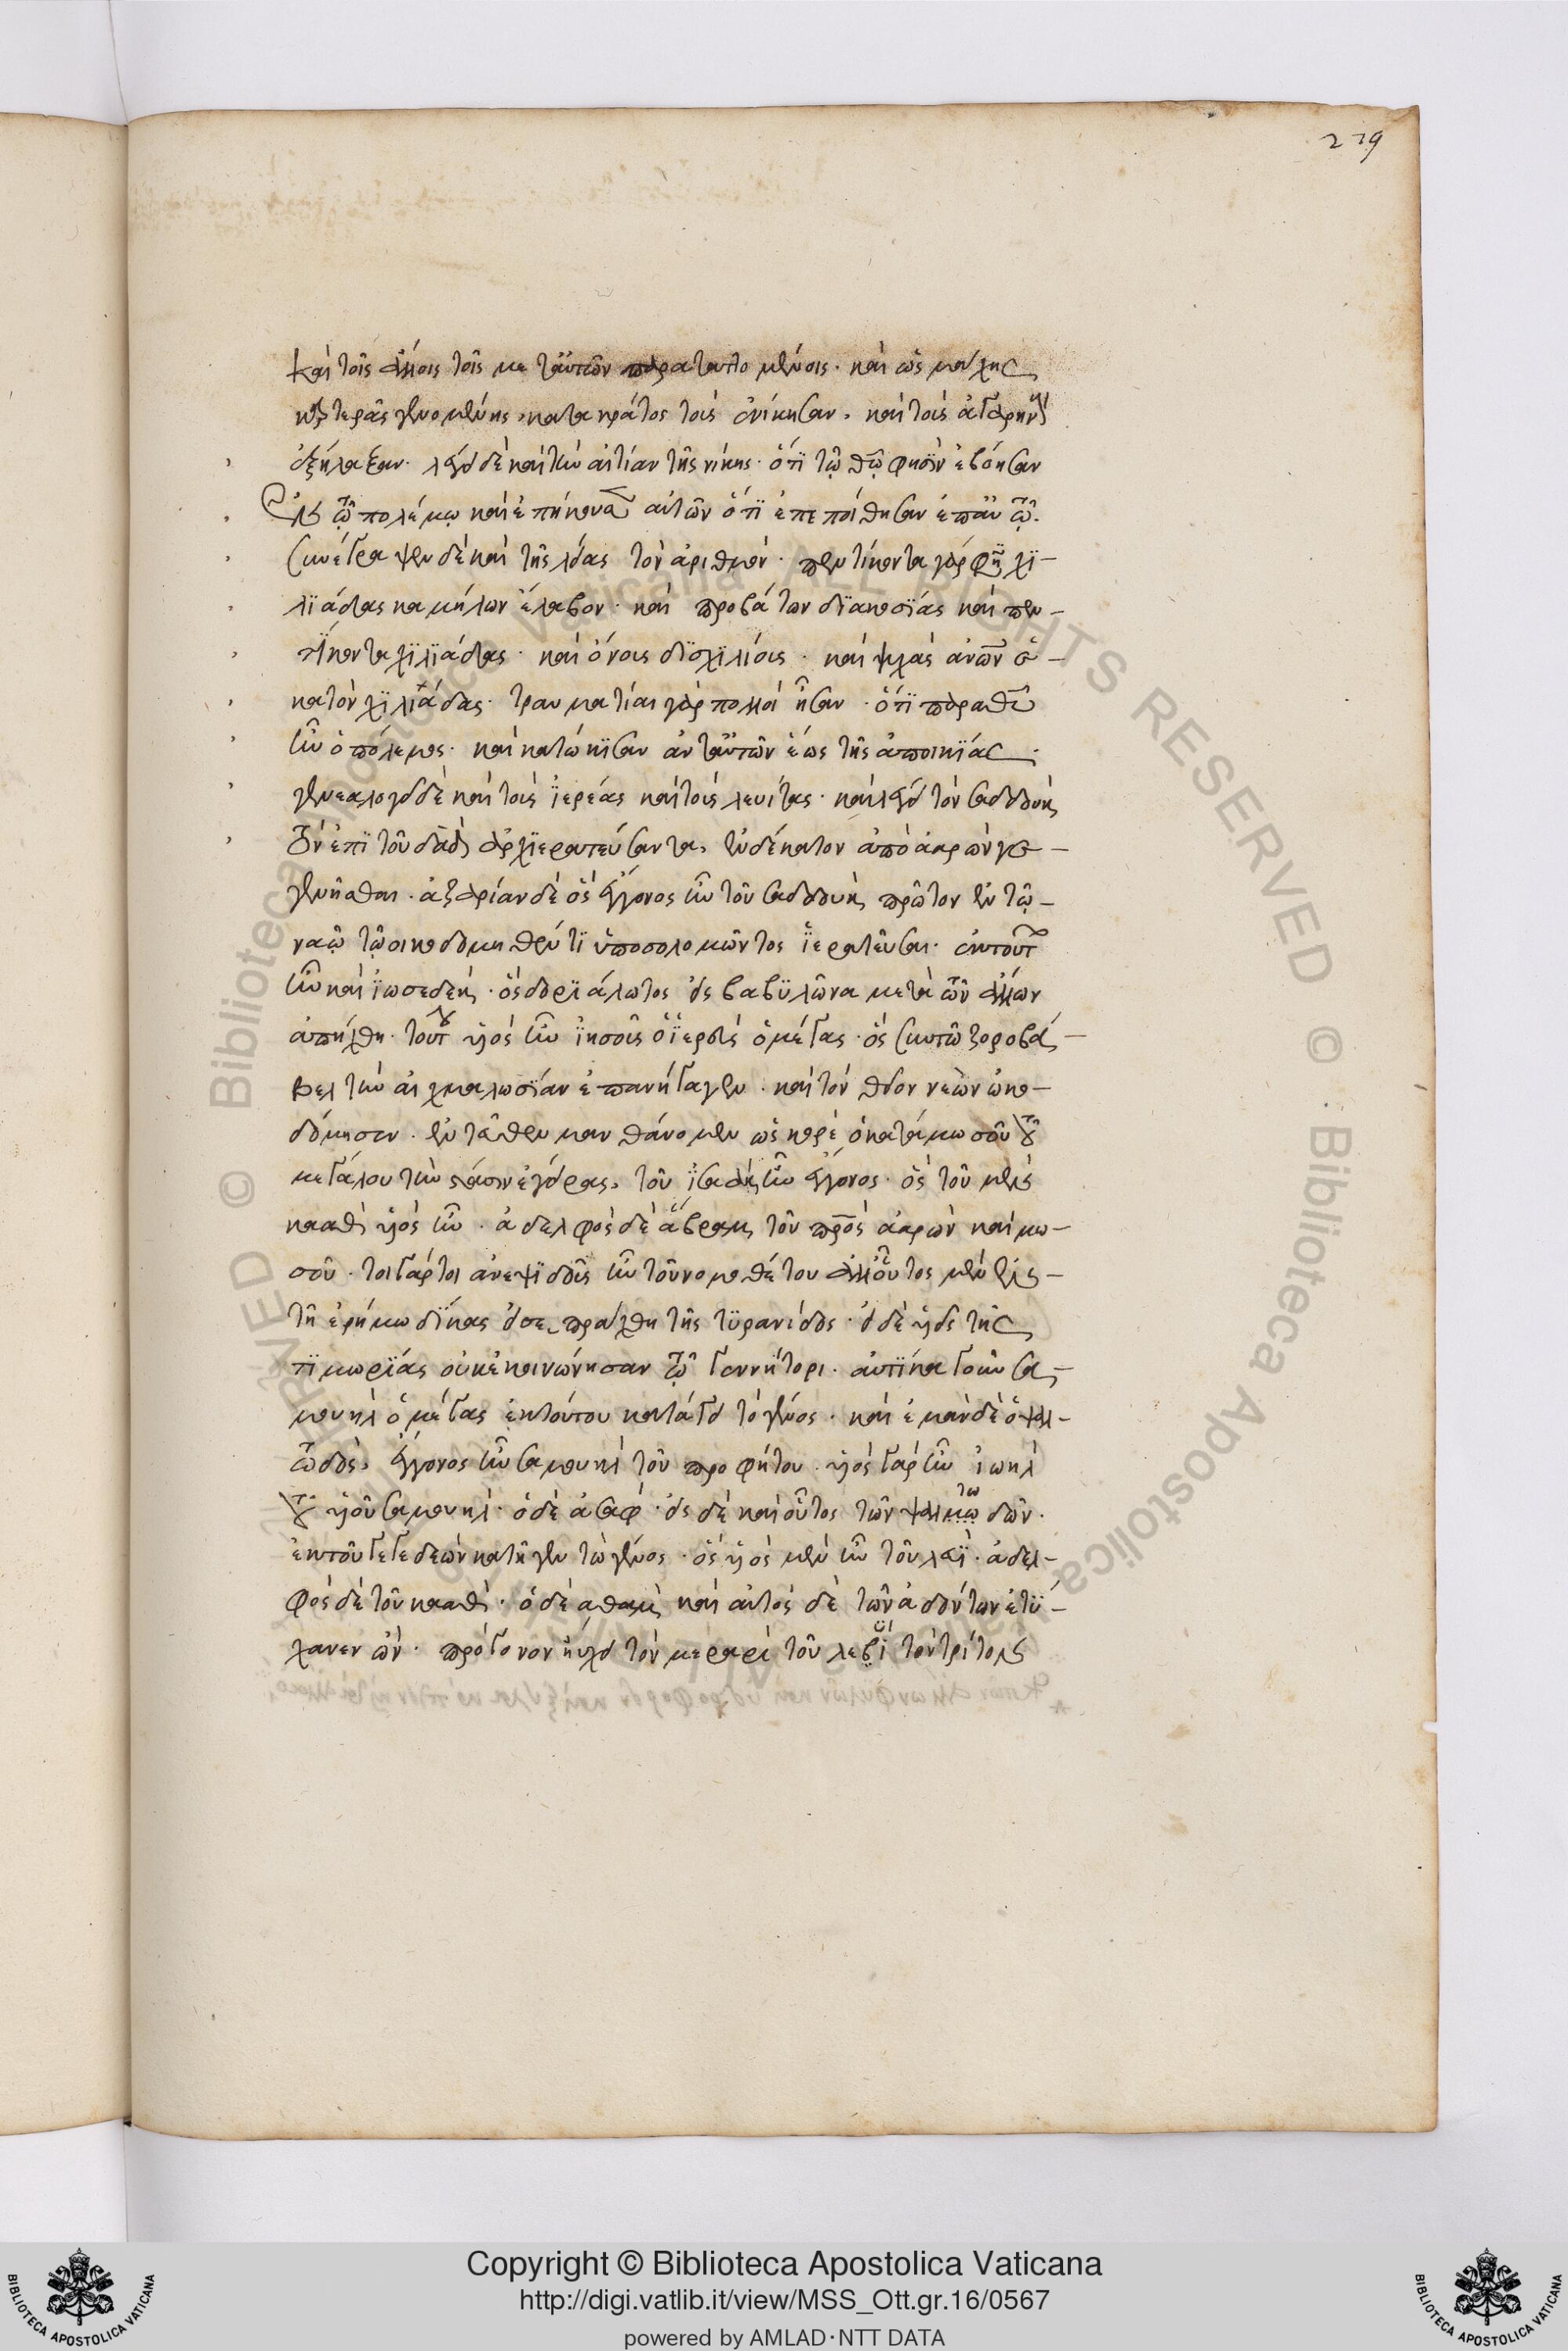 279
καὶ τοὺς ἄλλους τοὺς μετ' αὐτῶν παραταττομένους· καὶ ὡς μάχης
καρτερᾶς γενομένης, κατακράτος τοὺς ἐνίκησαν, καὶ τοὺς ἀγαρηνοὺς
ἐξήλασαν. λέγει δὲ καὶ τὴν αἰτίαν τῆς νίκης· ὅτι τῷ θῷ φησὶν ἐβόησαν
ἐν τῷ πολέμῳ καὶ ἐπήκουσεν αὐτῶν ὅτι ἐπεποίθησαν ἐπ' αὐτῷ.
συνέγραψεν δὲ καὶ τῆς λείας τὸν ἀριθμόν· πεντήκοντα γάρ φησι χι-
λιάδας καμήλων ἔλαβον· καὶ προβάτων διακοσίας καὶ πεν-
τήκοντα χιλιάδας· καὶ ὄνους δισχιλίους· καὶ ψυχὰς ἀνων ἑ-
κατὸν χιλιάδας· τραυματίαι γὰρ πολλοὶ ἦσαν· ὅτι παρὰ θῦ
ἦν ὁ πόλεμος· καὶ κατώκησαν ἀντ' αὐτῶν ἕως τῆς ἀποικίας·
γενεαλογεῖ δὲ καὶ τοὺς ἱερέας καὶ τοὺς λευίτας· καὶ λέγει τὸν σαδδοὺκ
τὸν ἐπὶ τοῦ δαδ ἀρχιερατεύσαντα, ἑνδέκατον ἀπὸ ἀαρὼν γε-
γενῆσθαι. ἀζαρίαν δὲ ὃς ἔγγονος ἦν τοῦ σαδδοὺκ πρῶτον ἐν τῷ
ναῷ τῷ οἰκοδομηθέντι ὑπὸ σολομῶντος ἱερατεῦσαι. ἐκ τούτου
ἦν καὶ ἰωσεδέκ· ὃς δοριάλωτος εἰς βαβυλῶνα μετὰ τῶν ἄλλων
ἀπήχθη. τούτου υἱὸς ἦν ἰησοῦς ὁ ἱερεὺς ὁ μέγας· ὃς σὺν τῷ ζοροβά-
βελ τὴν αἰχμαλωσίαν ἐπανήγαγεν· καὶ τὸν θεῖον νεὼν ὠκο-
δόμησεν. ἐντεῦθεν μανθάνομεν ὡς κορὲ ὁ κατὰ μωσοῦ τοῦ
μεγάλου τὴν στάσιν ἐγείρας, τοῦ ἰσαὰκ ἦν ἔγγονος· ὃς τοῦ μὲν
καὰθ υἱὸς ἦν· ἀδελφὸς δὲ ἄβραμ τοῦ πρὸς ἀαρὼν καὶ μω-
σοῦ. τοιγάρτοι ἀνεψιαδοῦς ἦν τοῦ νομοθέτου ἀλλ' οὗτος μὲν ἐν
τῇ ἐρήμω δίκας εἰσεπράχθη τῆς τυρανίδος· οἱ δὲ υἱεῖς τῆς
τιμωρίας οὐκ ἐκοινώνησαν τῷ γεννήτορι. αὐτίκα γοῦν σα-
μουὴλ ὁ μέγας ἐκ τούτου κατάγει τὸ γένος· καὶ ἐμὰν δὲ ὁ ψαλ-
τῳδὸς, ἔγγονος ἦν σαμουὴλ τοῦ προφήτου. υἱὸς γὰρ ἦν ἰωὴλ
τοῦ υἱοῦ σαμουὴλ· ὁ δὲ ἀσὰφ· εἷς δὲ καὶ οὗτος τῶν ψαλμῳδῶν.
ἐκ τοῦ γεγεδεὼν κατῆγεν τὼ γένος· ὃς υἱὸς μὲν ἦν τοῦ λευῒ· ἀδελ-
φὸς δὲ τοῦ καὰθ· ὁ δὲ αἰθὰμ καὶ αὐτὸς δὲ τῶν ἀδόντων ἐτύ-
χανεν ὤν· πρόγονον ηὔχει τὸν μεραρὶ τοῦ λεβὶ τὸν τρίτον
Copyright © Biblioteca Apostolica Vaticana
http://digi.vatlib.it/view/MSS_Ott.gr.16/0567
powered by AMLAD·NTT DATA